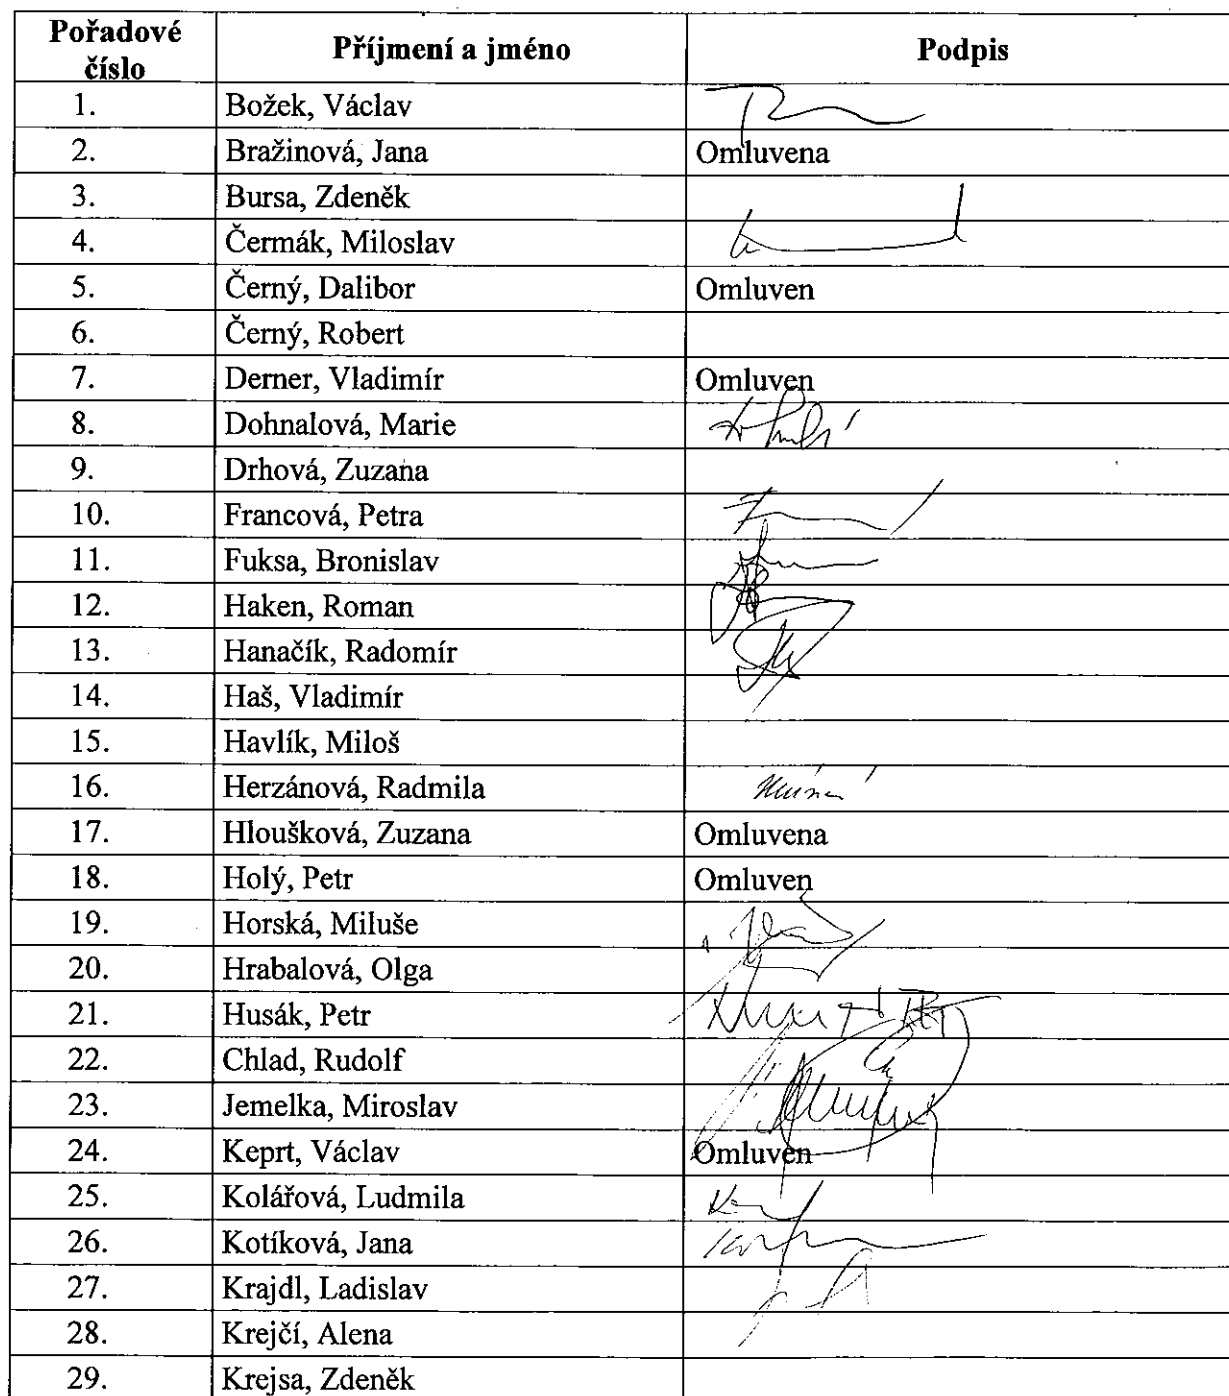 Pořadové číslo Příjmení a jméno Podpis
1. Božek, Václav
2. Bražinová, Jana Omluvena
3. Bursa, Zdeněk
4. Čermák, Miloslav
5. Černý, Dalibor Omluven
6. Černý, Robert
7. Derner, Vladimír Omluven
8. Dohnalová, Marie
9. Drhová, Zuzana
10. Francová, Petra
11. Fuksa, Bronislav
12. Haken, Roman
13. Hanačík, Radomír
14. Haš, Vladimír
15. Havlík, Miloš
16. Herzánová, Radmila
17. Hloušková, Zuzana Omluvena
18. Holý, Petr Omluven
19. Horská, Miluše
20. Hrabalová, Olga
21. Husák, Petr
22. Chlad, Rudolf
23. Jemelka, Miroslav
24. Keprt, Václav Omluven
25. Kolářová, Ludmila
26. Kotíková, Jana
27. Krajdl, Ladislav
28. Krejčí, Alena
29. Krejsa, Zdeněk